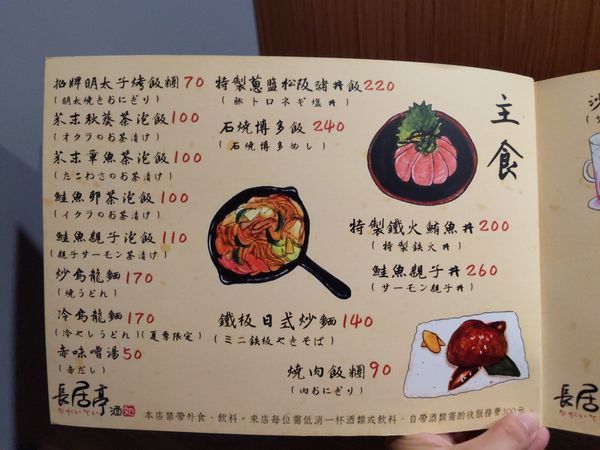 主食
招牌明太子烤飯糰 70
(明太焼きおにぎり)
芥末秋葵茶泡飯 100
(オクラのお茶漬け)
芥末章魚茶泡飯 100
(たこわさのお茶漬け)
鮭魚卵茶泡飯 100
(イクラのお茶漬け)
鮭魚親子泡飯 110
(親子サーモン茶漬け)
炒烏龍麵 170
(焼うどん)
冷烏龍麵 170
(冷やしうどん)(夏季限定)
赤味噌湯 50
(赤だし)
特製蔥鹽松阪豬丼飯 220
(豚トロネギ塩丼)
石燒博多飯 240
(石焼博多めし)
特製鐵火鮪魚丼 200
(特製鉄火丼)
鮭魚親子丼 260
(サーモン親子丼)
鐵板日式炒麵 140
(ミニ鉄板やきそば)
燒肉飯糰 90
(肉おにぎり)
長居亭 酒処
ながいてい
本店禁帶外食、飲料。來店每位需低消一杯酒類或飲料，自帶酒類需酌收服務費300元
長居
ながい